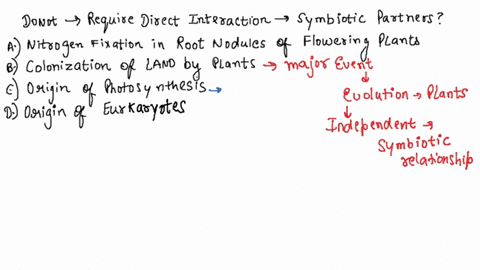 DONOT → Require Direct Interaction → Symbiotic Partners?
A.) Nitrogen Fixation in Root Nodules of Flowering Plants
B.) Colonization of LAND by Plants → major Event
C.) Origin of Photosynthesis →
D.) Origin of Eurkaryotes
↓
Evolution → Plants
↓
Independent →
Symbiotic
relationship